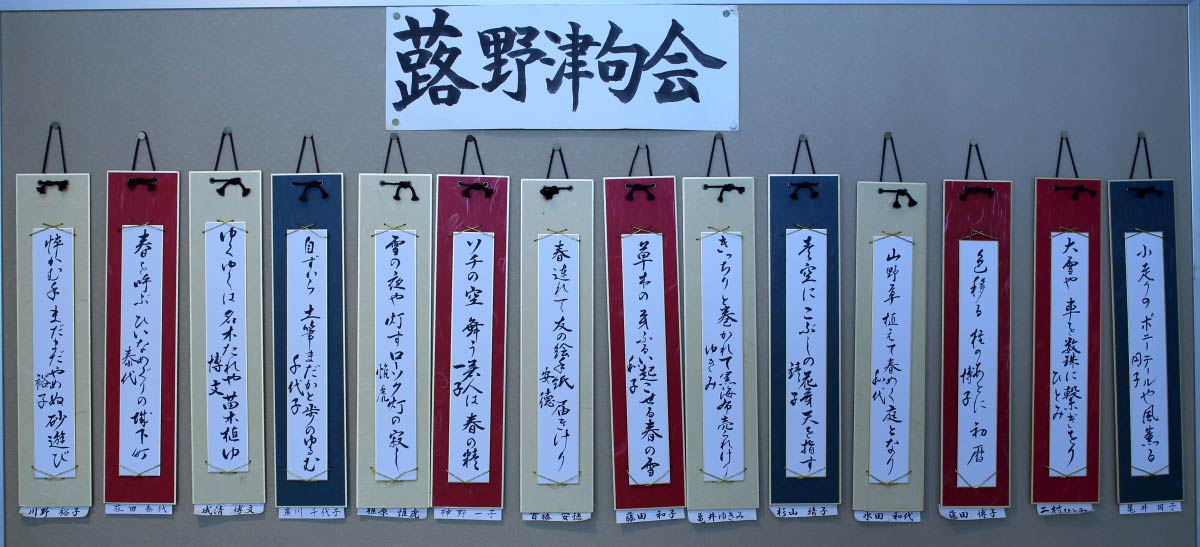 蕗野津句会
小走りのポニーテールや風薫る
円子
大雪や車を数珠に繋ぎをり
ひとみ
色移る 桂のあとに 初暦
博子
青空にこぶしの花芽天を指す
靖子
山野草植えて春めく庭となり
和代
きっちりと巻かれて黒海布売られけり
ゆきみ
草木の芽ふるい起こせる春の雪
和子
春遅れて友の絵手紙届きけり
安徳
ソチの空 舞う美人は春の精
一子
雪の夜や灯すローソク灯の寂し
恒彦
自ずから 土筆まだかと歩のゆるむ
千代子
ゆくゆくは名木たれや苗木植ゆ
博文
春を呼ぶ ひいなめぐりの城下町
泰代
悴かむ手まだまだやめぬ砂遊び
裕子
亀井 円子
二村ひとみ
窪田 博子
杉山 靖子
水田 和代
亀井ゆきみ
藤田 和子
首藤 安徳
神野 一子
千代子
成清 博文
泰代
川野 裕子